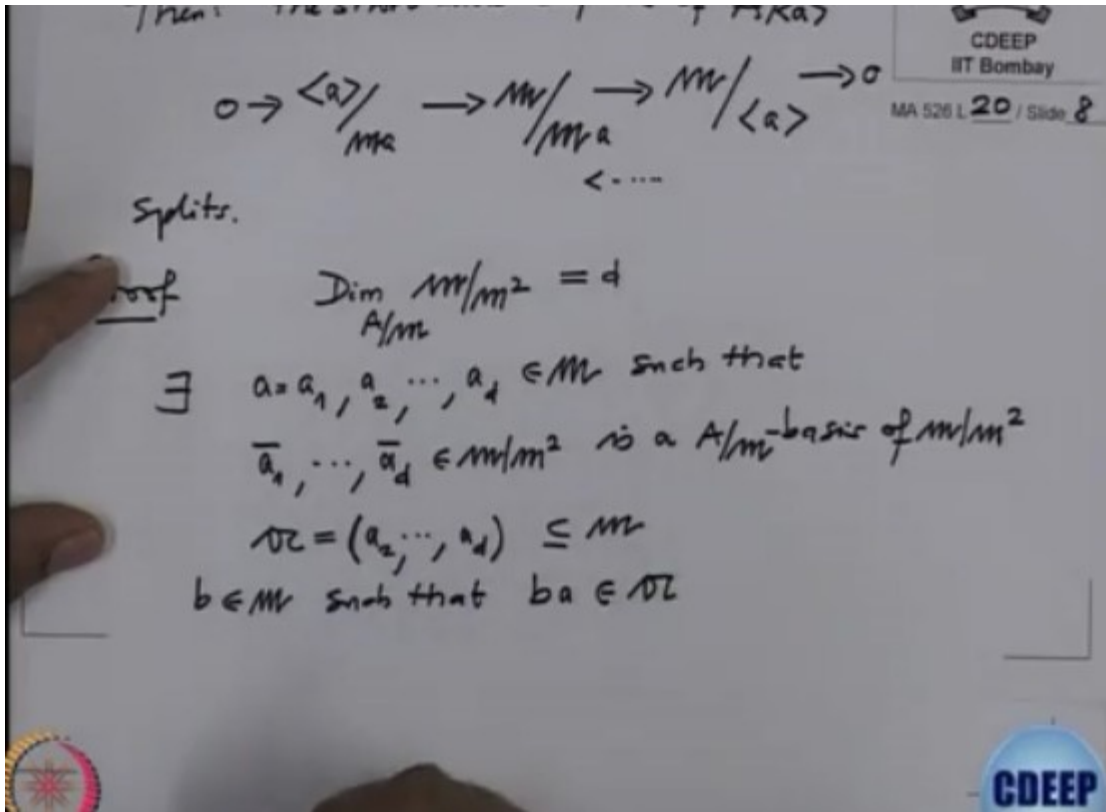 Then: The short exact
CDEEP
IIT Bombay
MA 526 L 20 / Slide 8
0 → <a>/ma → m/ma → m/<a> → 0
<----
Splits.
Proof Dim_{A/m} m/m² = d
∃ a = a₁, a₂, ..., a_d ∈ m such that
ā₁, ..., ā_d ∈ m/m² is a A/m-basis of m/m²
𝔞 = (a₂, ..., a_d) ⊆ m
b ∈ m such that ba ∈ 𝔞
CDEEP